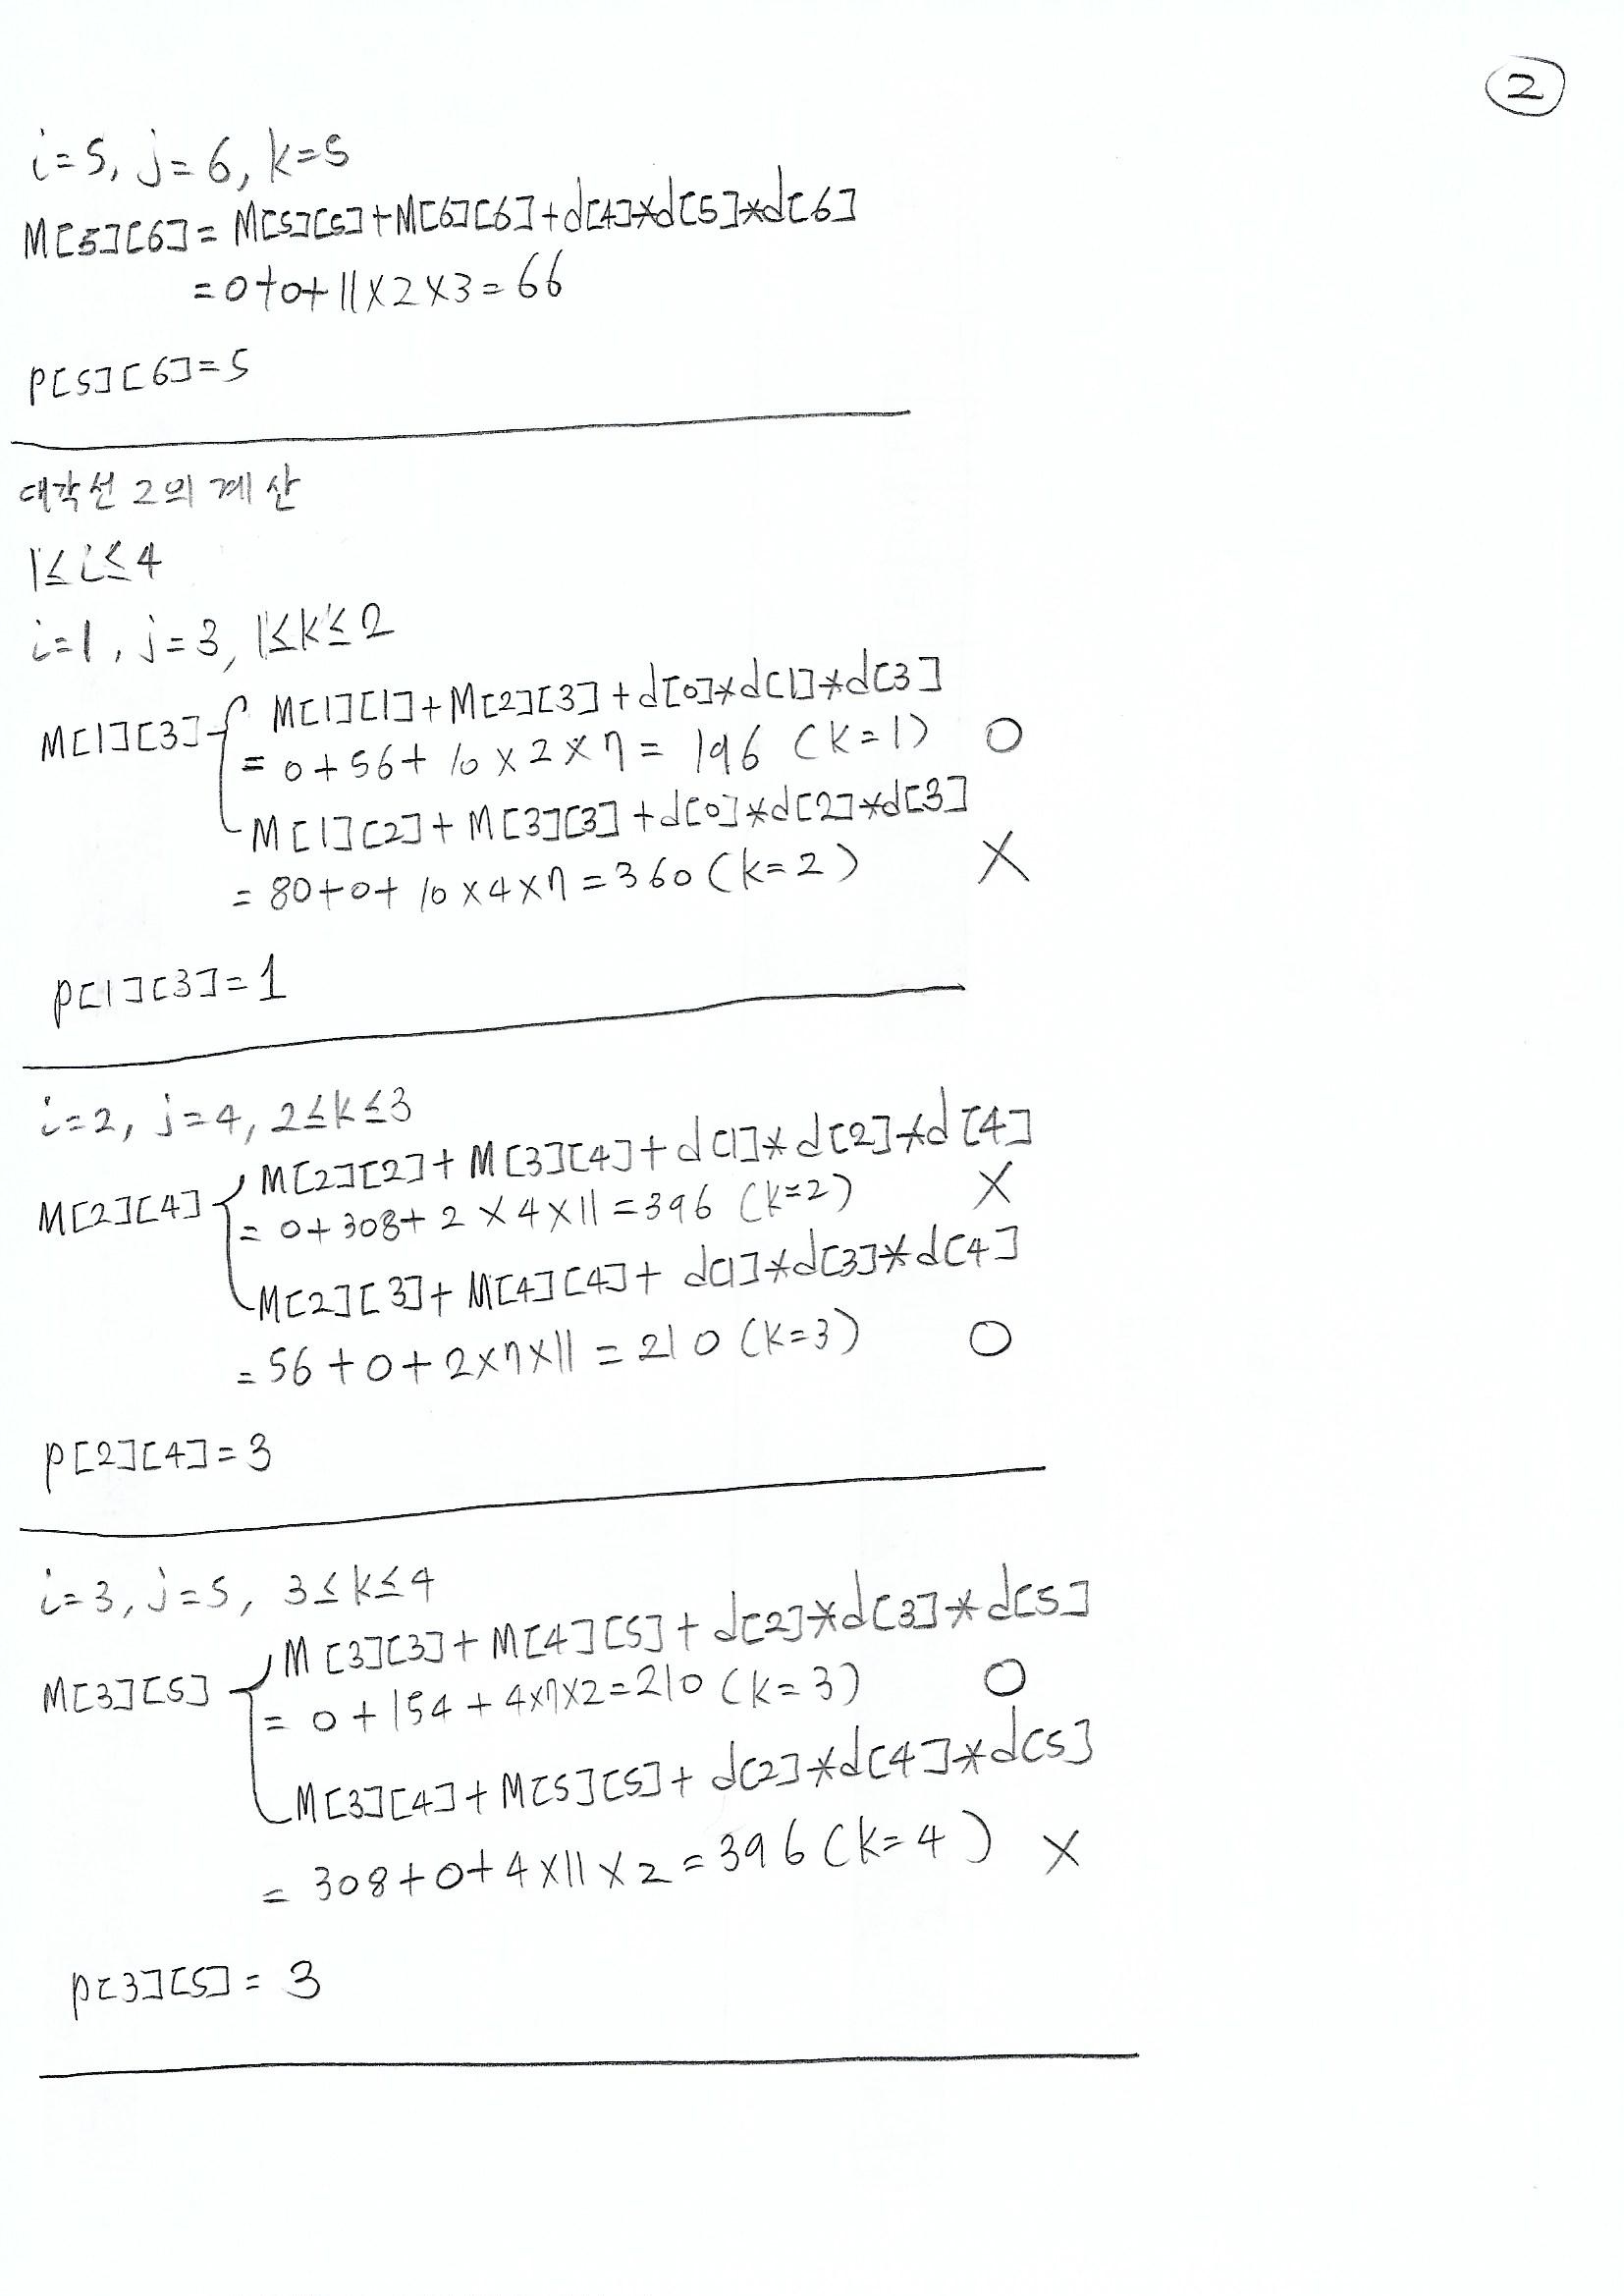 ②
i=5, j=6, k=5
M[5][6]= M[5][5]+M[6][6]+d[4]*d[5]*d[6]
=0+0+11×2×3=66
P[5][6]=5
대각선 2의 계산
1≤i≤4
i=1, j=3, 1≤k≤2
M[1][3] M[1][1]+M[2][3]+d[0]*d[1]*d[3]
= 0+56+ 10×2×7= 196 (k=1) O
M[1][2]+M[3][3]+d[0]*d[2]*d[3]
= 80+0+ 10×4×7=360 (k=2) X
P[1][3]=1
i=2, j=4, 2≤k≤3
M[2][4] M[2][2]+M[3][4]+d[1]*d[2]*d[4]
= 0+308+2×4×11=396 (k=2) X
M[2][3]+M[4][4]+ d[1]*d[3]*d[4]
=56+0+2×7×11=210 (k=3) O
P[2][4]=3
i=3, j=5, 3≤k≤4
M[3][5] M[3][3]+M[4][5]+d[2]*d[3]*d[5]
= 0+154+4×7×2=210 (k=3) O
M[3][4]+M[5][5]+d[2]*d[4]*d[5]
= 308+0+4×11×2=396 (k=4) X
P[3][5]= 3